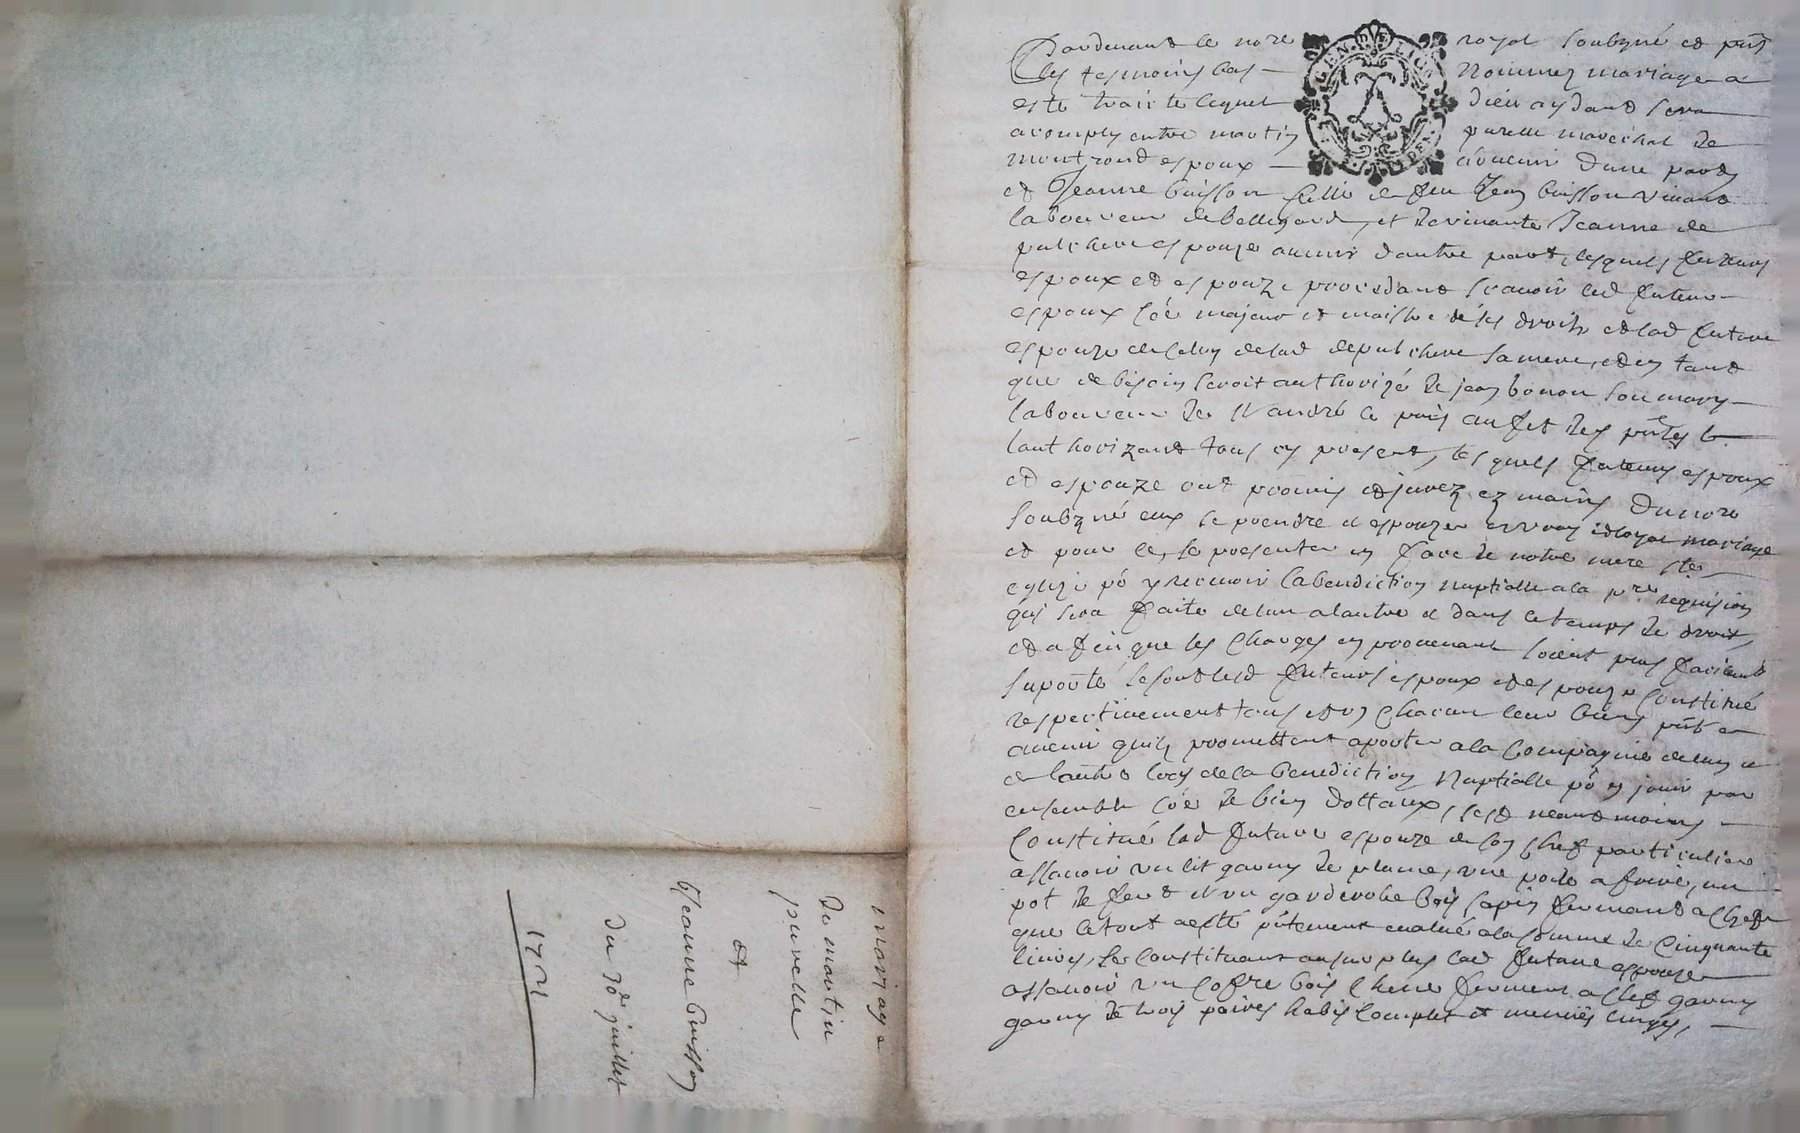 mariage
de martin
purelle
et
Jeanne buisson
du 30 juillet
1721
GEN. DE
Pardevant le no.re royal soubzné et pnts
les tesmoins bas nommez mariage a
esté traitté lequel dieu aydant sera
acomply entre martin purelle marechal de
montrond espoux a advenir dune part
et Jeanne buisson fille de feu Jean buisson vivant
laboureur de bellegarde, et de vivante Jeanne de
pulchere espouze avenir dautre part, lesquels futeurs
espoux et espouze procedant scavoir led futeur
espoux coe majeur et maistre de ses droits et lad future
espouze de celuy de lad depulchere sa mere, et en tant
que de besoin seroit authorizé de jean bonon son mary
laboureur de St andré le puis au fet des pntes le
lauthorizant tous cy present, lesquels futeurs espoux
et espouze ont promis et jurez ez mains du no.re
soubzné eux se prendre et espouzer en vray et loyal mariage
et pour ce, se presenter en face de notre mere ste
eglize pô y recevoir la benediction nuptialle a la pre requision
qui sera faite de lun a lautre et dans le temps de droit,
et afin que les charges en provenant soient plus facilement
suporté se sont lesd futeurs espoux et espouze constitué
respectivement tous et un chacun leur biens pnts et
avenir quils promettent aporter a la compagnie de lun et
de lautre lors de la benediction nuptialle pô en jouir par
ensemble coe de bien dottaux, sest neantmoins
constitué lad future espouze de son chef particulier
assavoir un lit garny de plume, une poile a frire, un
pot de fert et un garderobe bois sapin fermant a clef
que le tout a esté pntement evalué a la somme de cinquante
livres, se constituant en surplus lad future espouze
assavoir un coffre bois chene fermant a clef garny
garny de trois paires habis complet et menües linges,